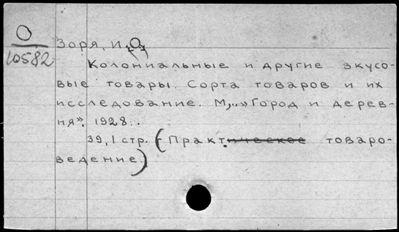 О
10582
Зоря, И. О.
Колониальные и другие вкусо-
вые товары. Сорта товаров и их
исследование. М., "Город и дерев-
ня". 1928.
39,1 стр. (Практическое товаро-
ведение)